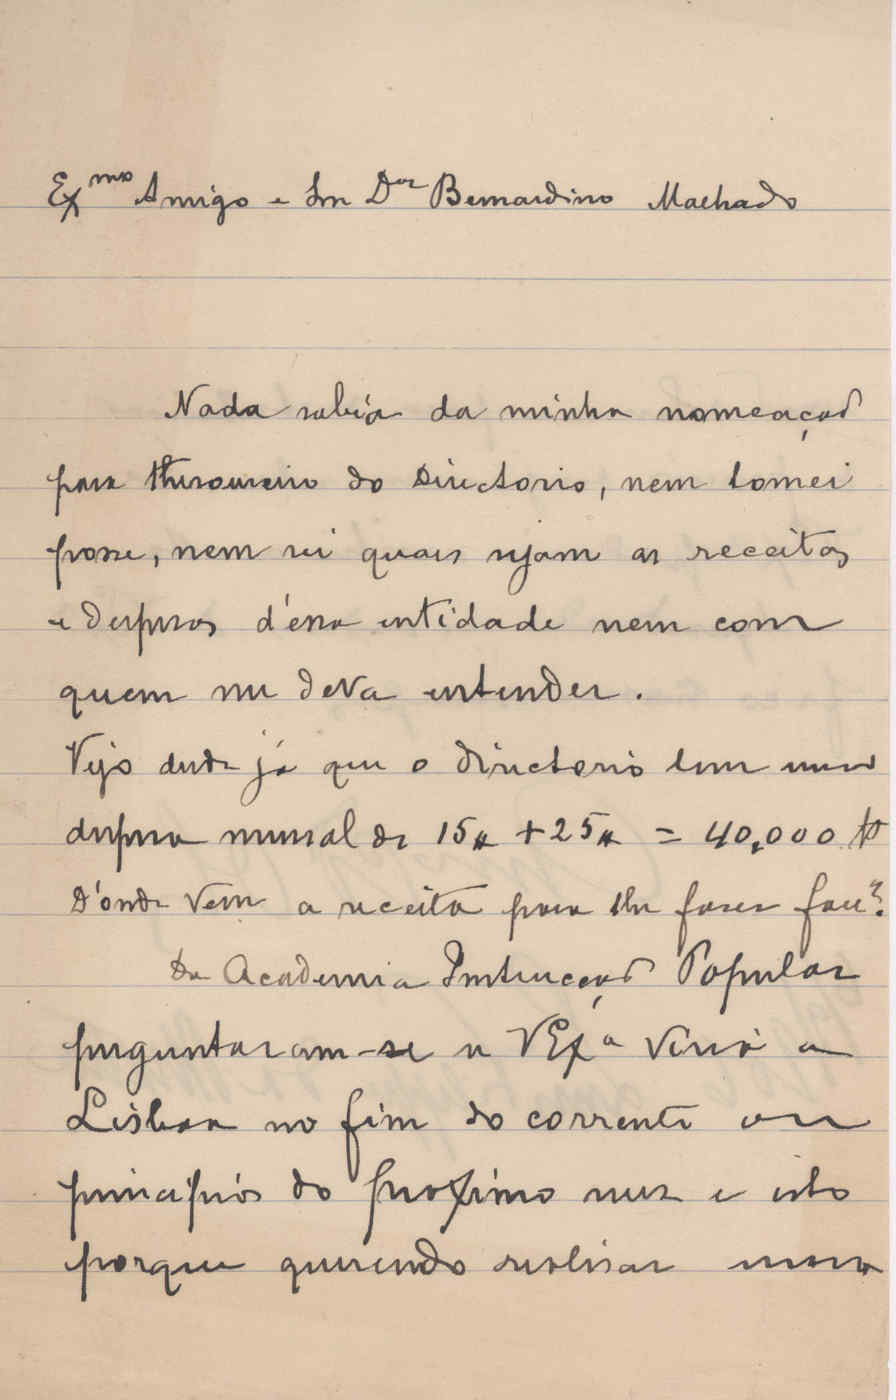 Exmo Amigo e Snr Dor Bernardino Machado
Nada sabia da minha nomeação
para thesoureiro do Directorio, nem tomei
posse, nem sei quaes sejam as receitas
e despesas d'essa entidade nem com
quem me deva entender.
Vejo desde já que o directorio tem uma
despesa mensal de 15$ + 25$ = 40,000 $
D'onde vem a receita para lhe fazer face?
Da Academia Instrucção Popular
perguntaram-se se VExa virá a
Lisboa no fim do corrente ou
principios do proximo mez e isto
porque querendo realisar uma